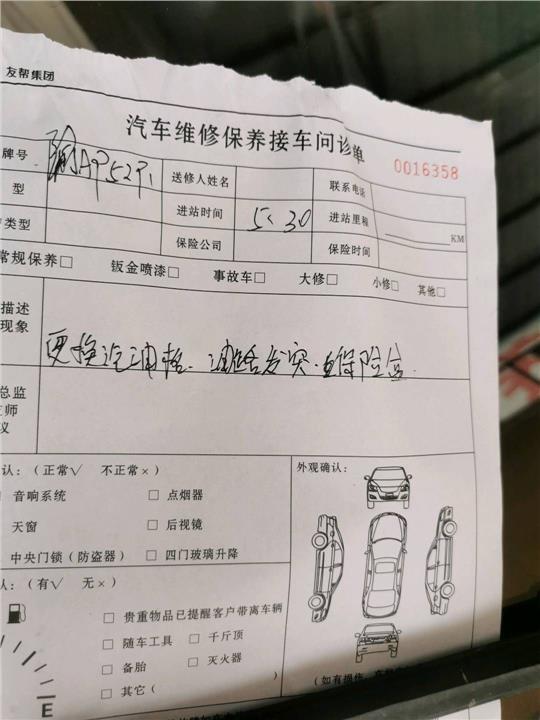 友帮集团
汽车维修保养接车问诊单
0016358
牌号 渝A 送修人姓名 联系电话
型 进站时间 5.30 进站里程 KM
类型 保险公司 保险时间
常规保养□ 钣金喷漆□ 事故车□ 大修□ 小修□ 其他□
描述
现象
更换汽油格. 保险盒
总监
师
议
认:（正常√ 不正常×） 外观确认:
音响系统 □ 点烟器
天窗 □ 后视镜
中央门锁（防盗器） □ 四门玻璃升降
认:（有√ 无×）
□ 贵重物品已提醒客户带离车辆
□ 随车工具 □ 千斤顶
□ 备胎 □ 灭火器
□ 其它（ ）
E
（如有损伤,